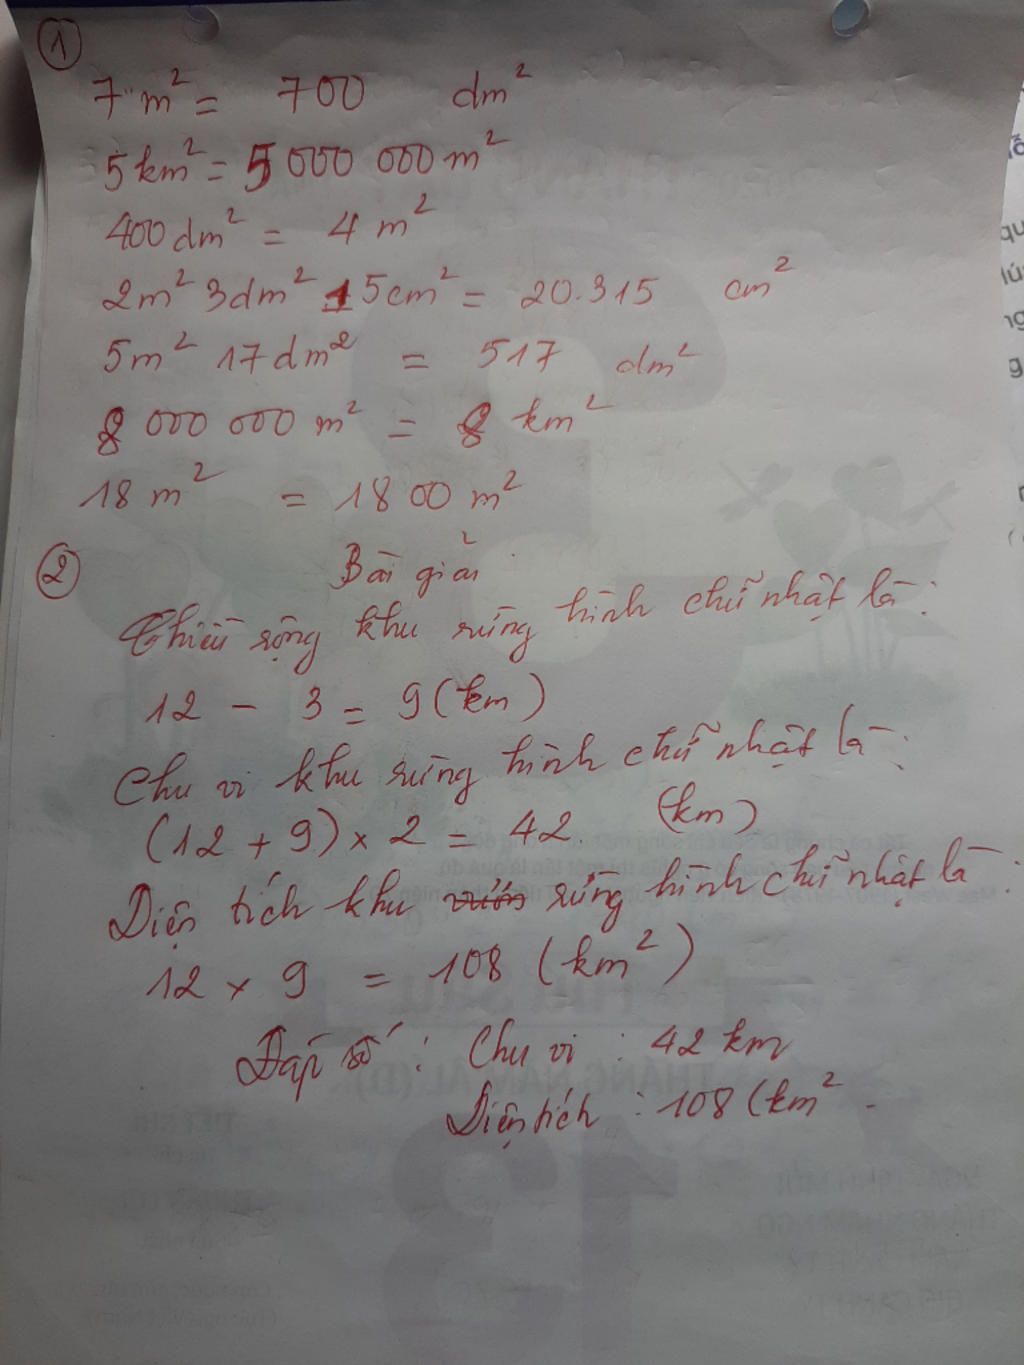 1
7 m² = 700 dm²
5 km² = 5 000 000 m²
400 dm² = 4 m²
2m² 3dm² 15cm² = 20.315 cm²
5m² 17dm² = 517 dm²
8 000 000 m² = 8 km²
18 m² = 18 00 m²
2
Bài giải
Chiều rộng khu rừng hình chữ nhật là:
12 - 3 = 9 (km)
Chu vi khu rừng hình chữ nhật là:
(12 + 9) × 2 = 42 (km)
Diện tích khu rừng hình chữ nhật là:
12 × 9 = 108 (km²)
Đáp số: Chu vi: 42 km
Diện tích: 108 (km².